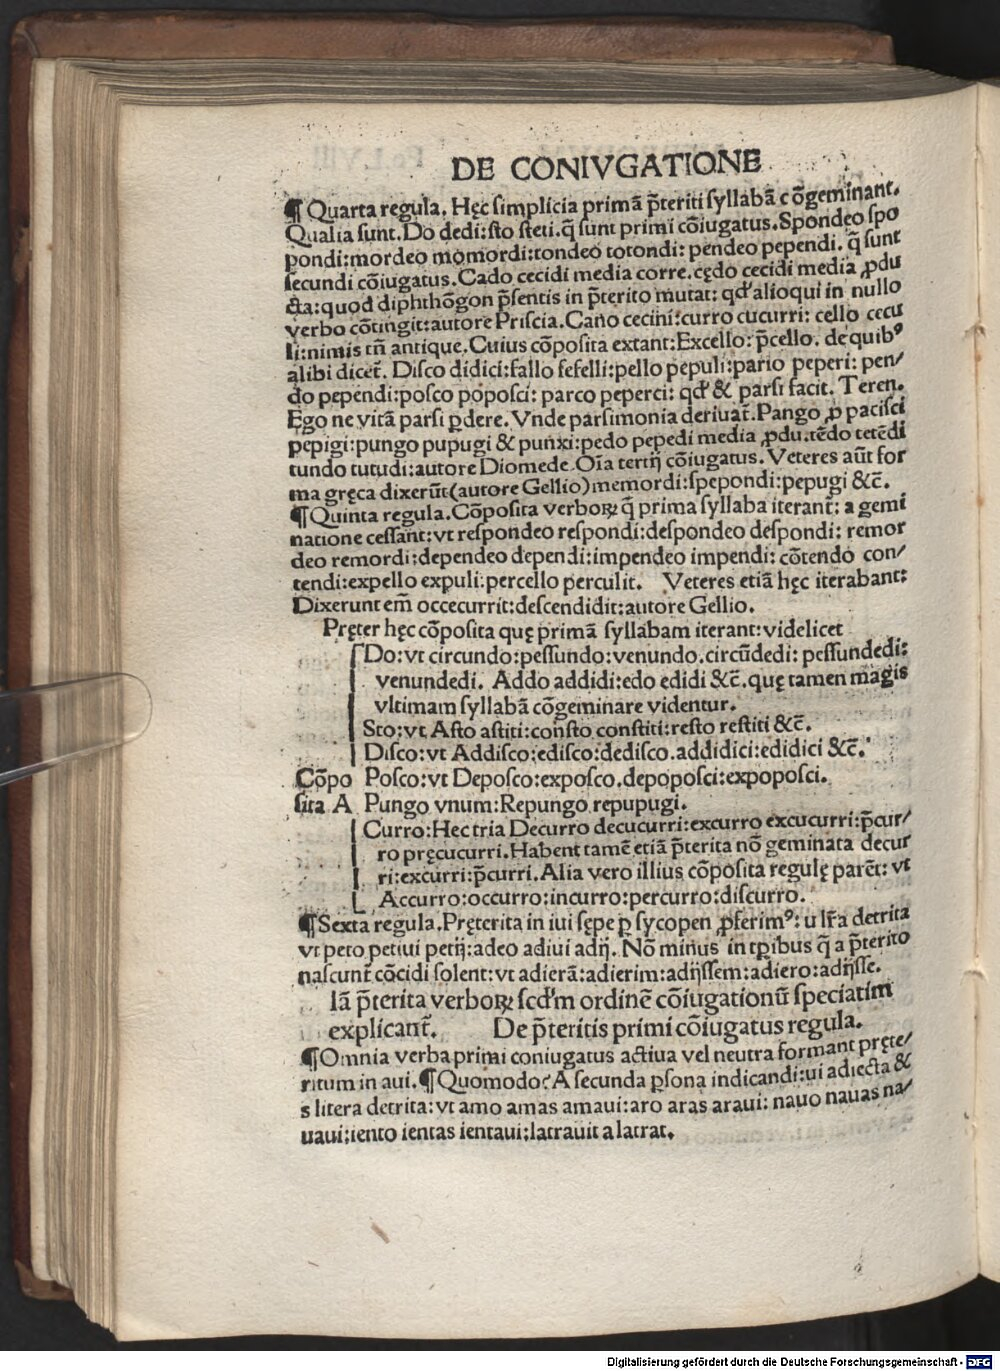 DE CONIVGATIONE
¶ Quarta regula. Hęc simplicia primā p̄teriti syllabā cōgeminant.
Qualia sunt. Do dedi: sto steti. q̄ sunt primi cōiugatus. Spondeo spo
pondi: mordeo momordi: tondeo totondi: pendeo pependi. q̄ sunt
secundi cōiugatus. Cado cecidi media corre. cędo cecidi media ꝓdu
cta: quod diphthōgon p̄sentis in p̄terito mutat: qđ alioqui in nullo
verbo cōtingit: autore Priscia. Cano cecini: curro cucurri: cello cecu
li: nimis tñ antique. Cuius cōposita extant: Excello: p̄cello. de quibꝰ
alibi dicet̄. Disco didici: fallo fefelli: pello pepuli: pario peperi: pen/
do pependi: posco poposci: parco peperci: qđ & parsi facit. Teren.
Ego ne vitā parsi ꝑdere. Vnde parsimonia deriuat̄. Pango ꝓ pacisci
pepigi: pungo pupugi & punxi: pedo pepedi media ꝓdu. tēdo tetēdi
tundo tutudi: autore Diomede. Oīa tertij cōiugatus. Veteres aūt for
ma gręca dixerūt (autore Gellio) memordi: spepondi: pepugi &c̄.
¶ Quinta regula. Cōposita verboꝝ q̄ prima syllaba iterant̄: a gemi
natione cessant: vt respondeo respondi: despondeo despondi: remor
deo remordi: dependeo dependi: impendeo impendi: cōtendo con/
tendi: expello expuli: percello perculit. Veteres etiā hęc iterabant:
Dixerunt em̄ occecurrit: descendidit: autore Gellio.
Pręter hęc cōposita quę primā syllabam iterant: videlicet
Do: vt circundo: pessundo: venundo. circūdedi: pessundedi:
venundedi. Addo addidi: edo edidi &c̄. quę tamen magis
vltimam syllabā cōgeminare videntur.
Sto: vt Asto astiti: consto constiti: resto restiti &c̄.
Disco: vt Addisco: edisco: dedisco. addidici: edidici &c̄.
Cōpo Posco: vt Deposco: exposco. depoposci: expoposci.
sita A Pungo vnum: Repungo repupugi.
Curro: Hec tria Decurro decucurri: excurro excucurri: p̄cur/
ro pręcucurri. Habent tamē etiā p̄terita nō geminata decur
ri: excurri: p̄curri. Alia vero illius cōposita regulę parēt: vt
Accurro: occurro: incurro: percurro: discurro.
¶ Sexta regula. Pręterita in iui sępe ꝑ sycopen ꝓferimꝰ: u lr̄a detrita
vt peto petiui petij: adeo adiui adij. Nō minus in tꝑibus q̄ a p̄terito
nascunt̄ cōcidi solent: vt adierā: adierim: adijssem: adiero: adijsse.
Iā p̄terita verboꝝ scd'm ordinē cōiugationū speciatim
explicant̄. De p̄teritis primi cōiugatus regula.
¶ Omnia verba primi coniugatus actiua vel neutra formant pręte/
ritum in aui. ¶ Quomodo? A secunda ꝑsona indicandi: ui adiecta &
s litera detrita: vt amo amas amaui: aro aras araui: nauo nauas na/
uaui: iento ientas ientaui: latrauit a latrat.
Digitalisierung gefördert durch die Deutsche Forschungsgemeinschaft - DFG